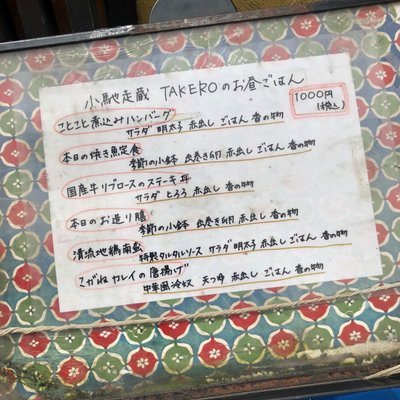 小馳走蔵 TAKEROのお昼ごはん
1000円
(税込)
ことこと煮込みハンバーグ
サラダ 明太子 赤出し ごはん 香の物
本日の焼き魚定食
季節の小鉢 出巻き卵 赤出し ごはん 香の物
国産牛リブロースのステーキ丼
サラダ とろろ 赤出し 香の物
本日のお造り膳
季節の小鉢 出巻き卵 赤出し ごはん 香の物
清流地鶏南蛮
特製タルタルソース サラダ 明太子 赤出し ごはん 香の物
こがねカレイの唐揚げ
中華風冷奴 天つゆ 赤出し ごはん 香の物